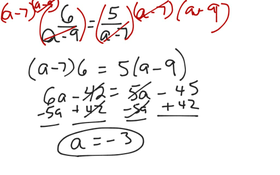 (a-7)(a-9)(6/(a-9)) = (5/(a-7))(a-7)(a-9)
(a-7)6 = 5(a-9)
6a - 42 = 5a - 45
-5a + 42 -5a + 42
a = -3